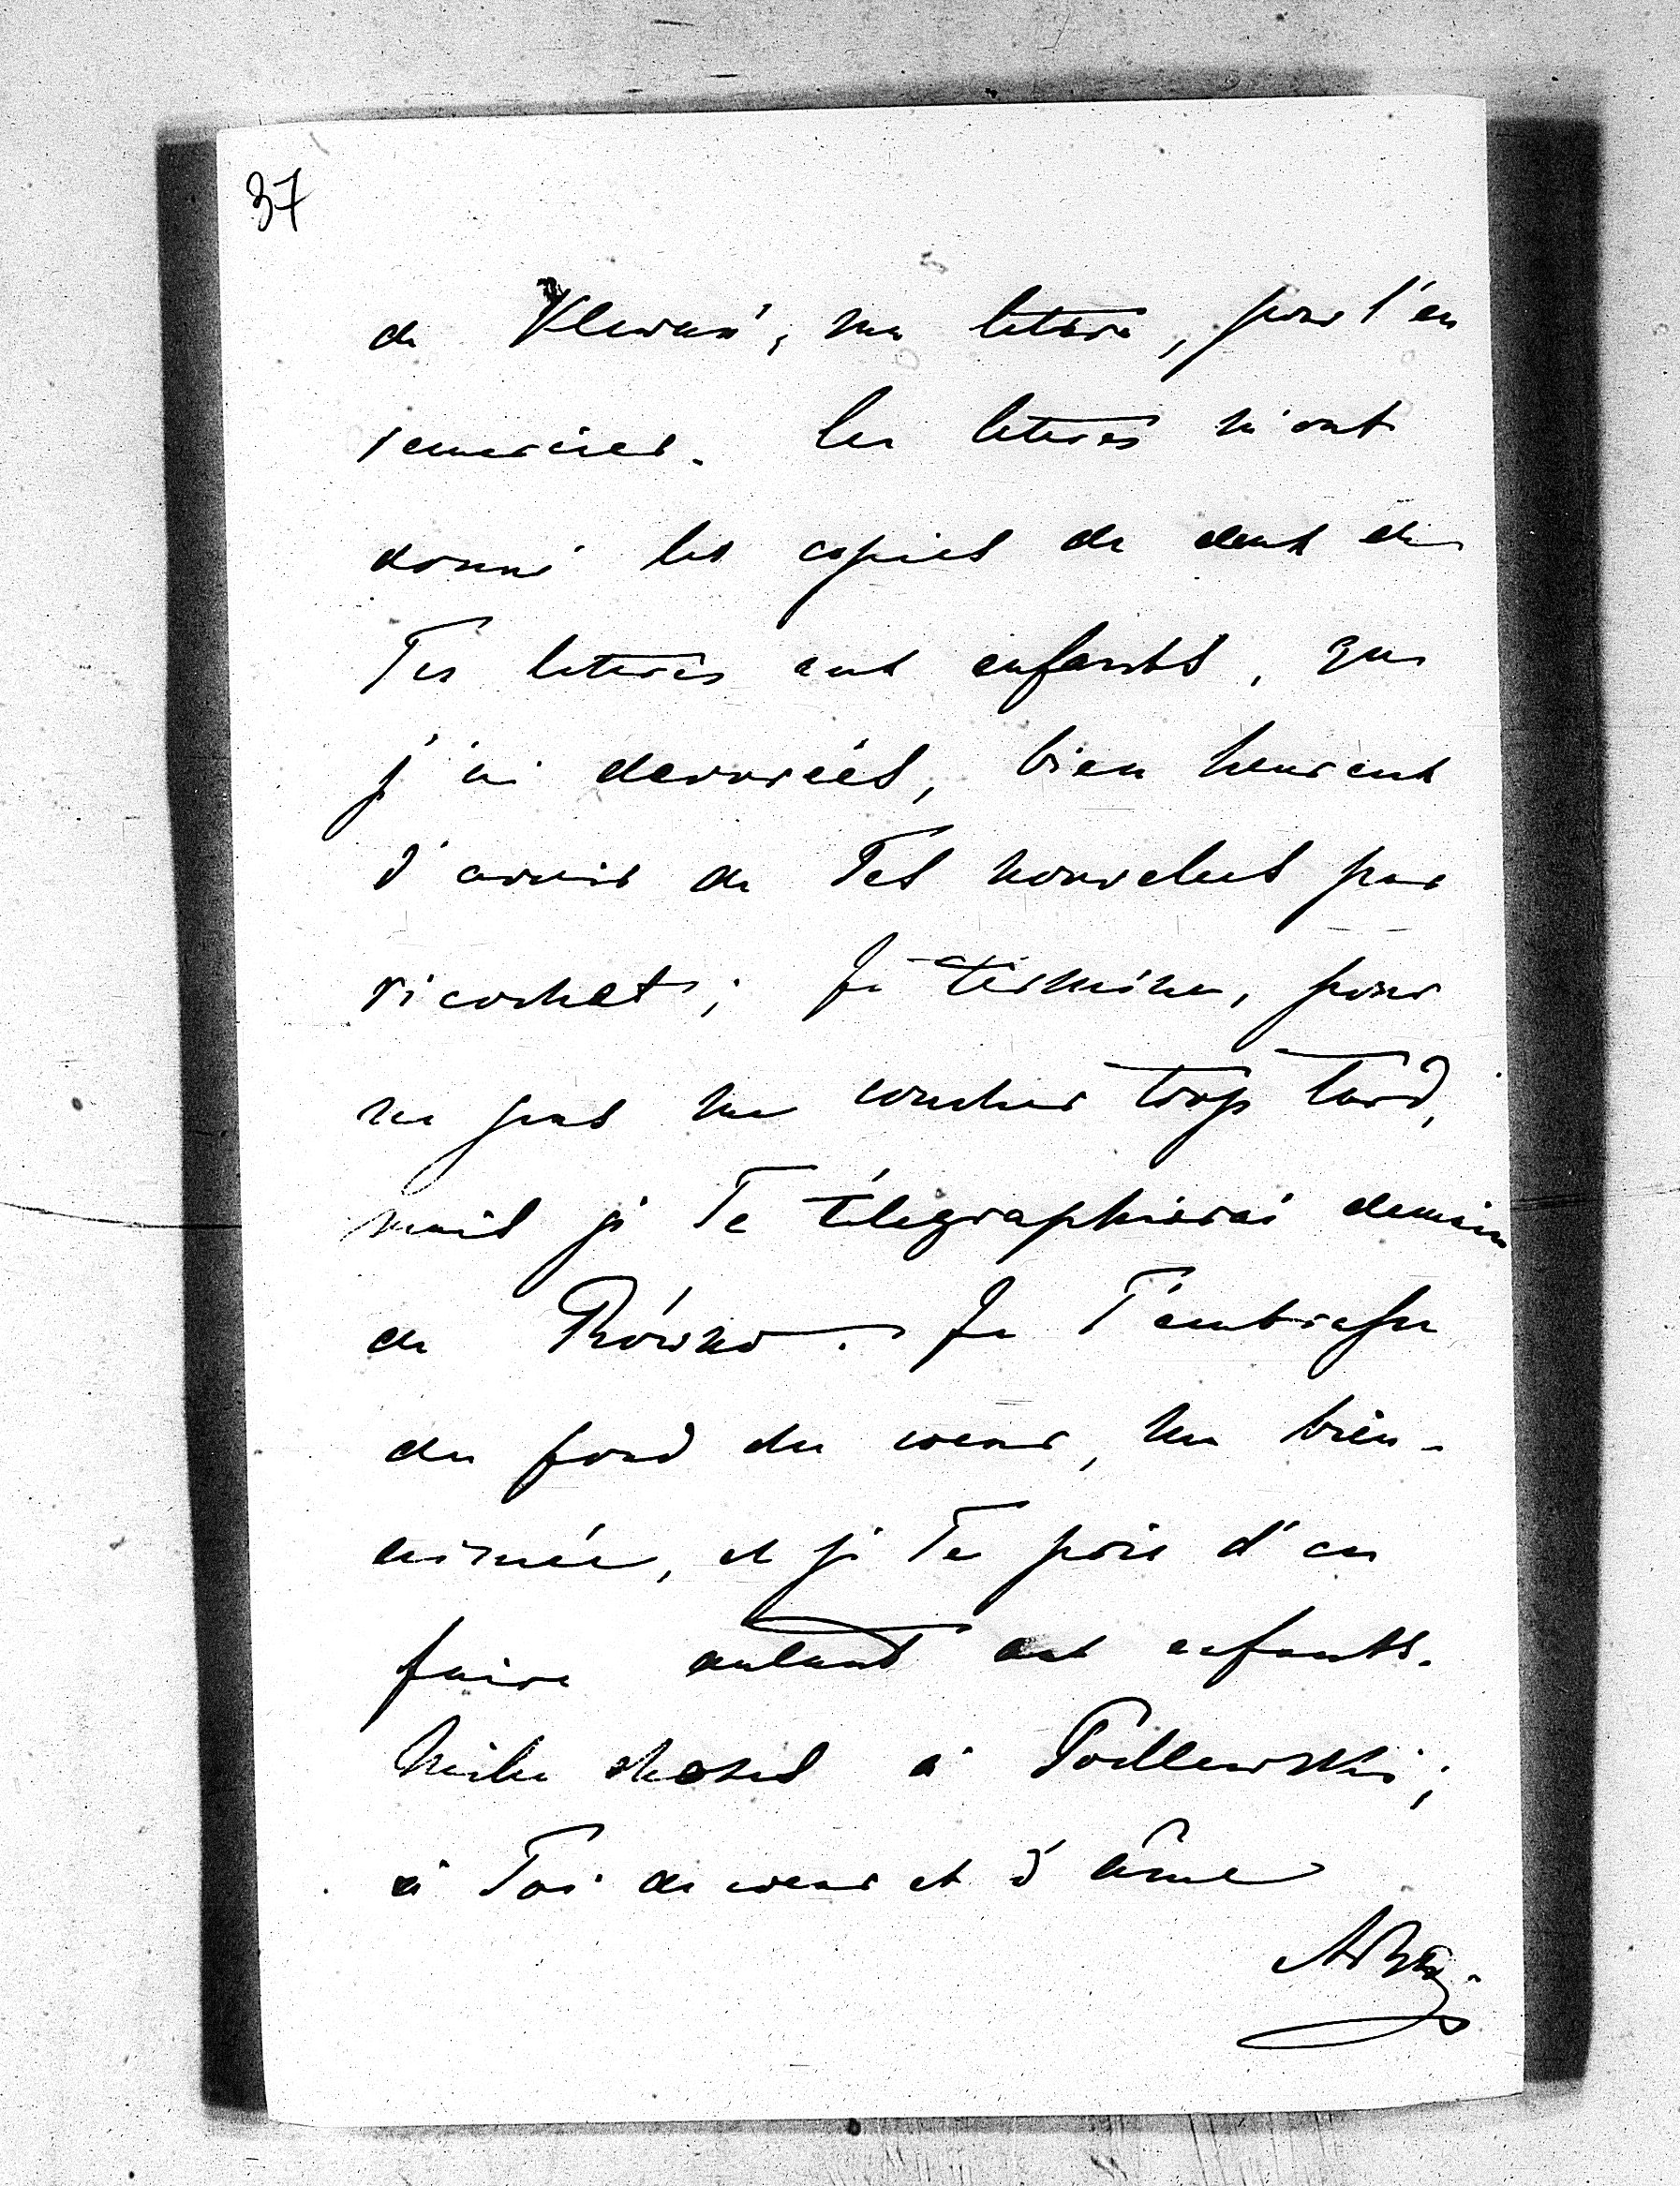 37
de Klewań, ma lettre, pour l'en
remercier. Les lettres m'ont
donné les copies de deux de
Tes lettres aux enfants, que
j'ai devorées, bien heureux
d'avoir de Tes nouvelles par
ricochet; Je termine, pour
ne pas me coucher trop tard,
mais je Te télégraphierai demain
de Równo. Je T'embrasse
du fond du coeur, ma bien-
aimée, et je Te prie d'en
faire autant aux enfants.
Mille choses à Podlewski;
à Toi de coeur et d'âme